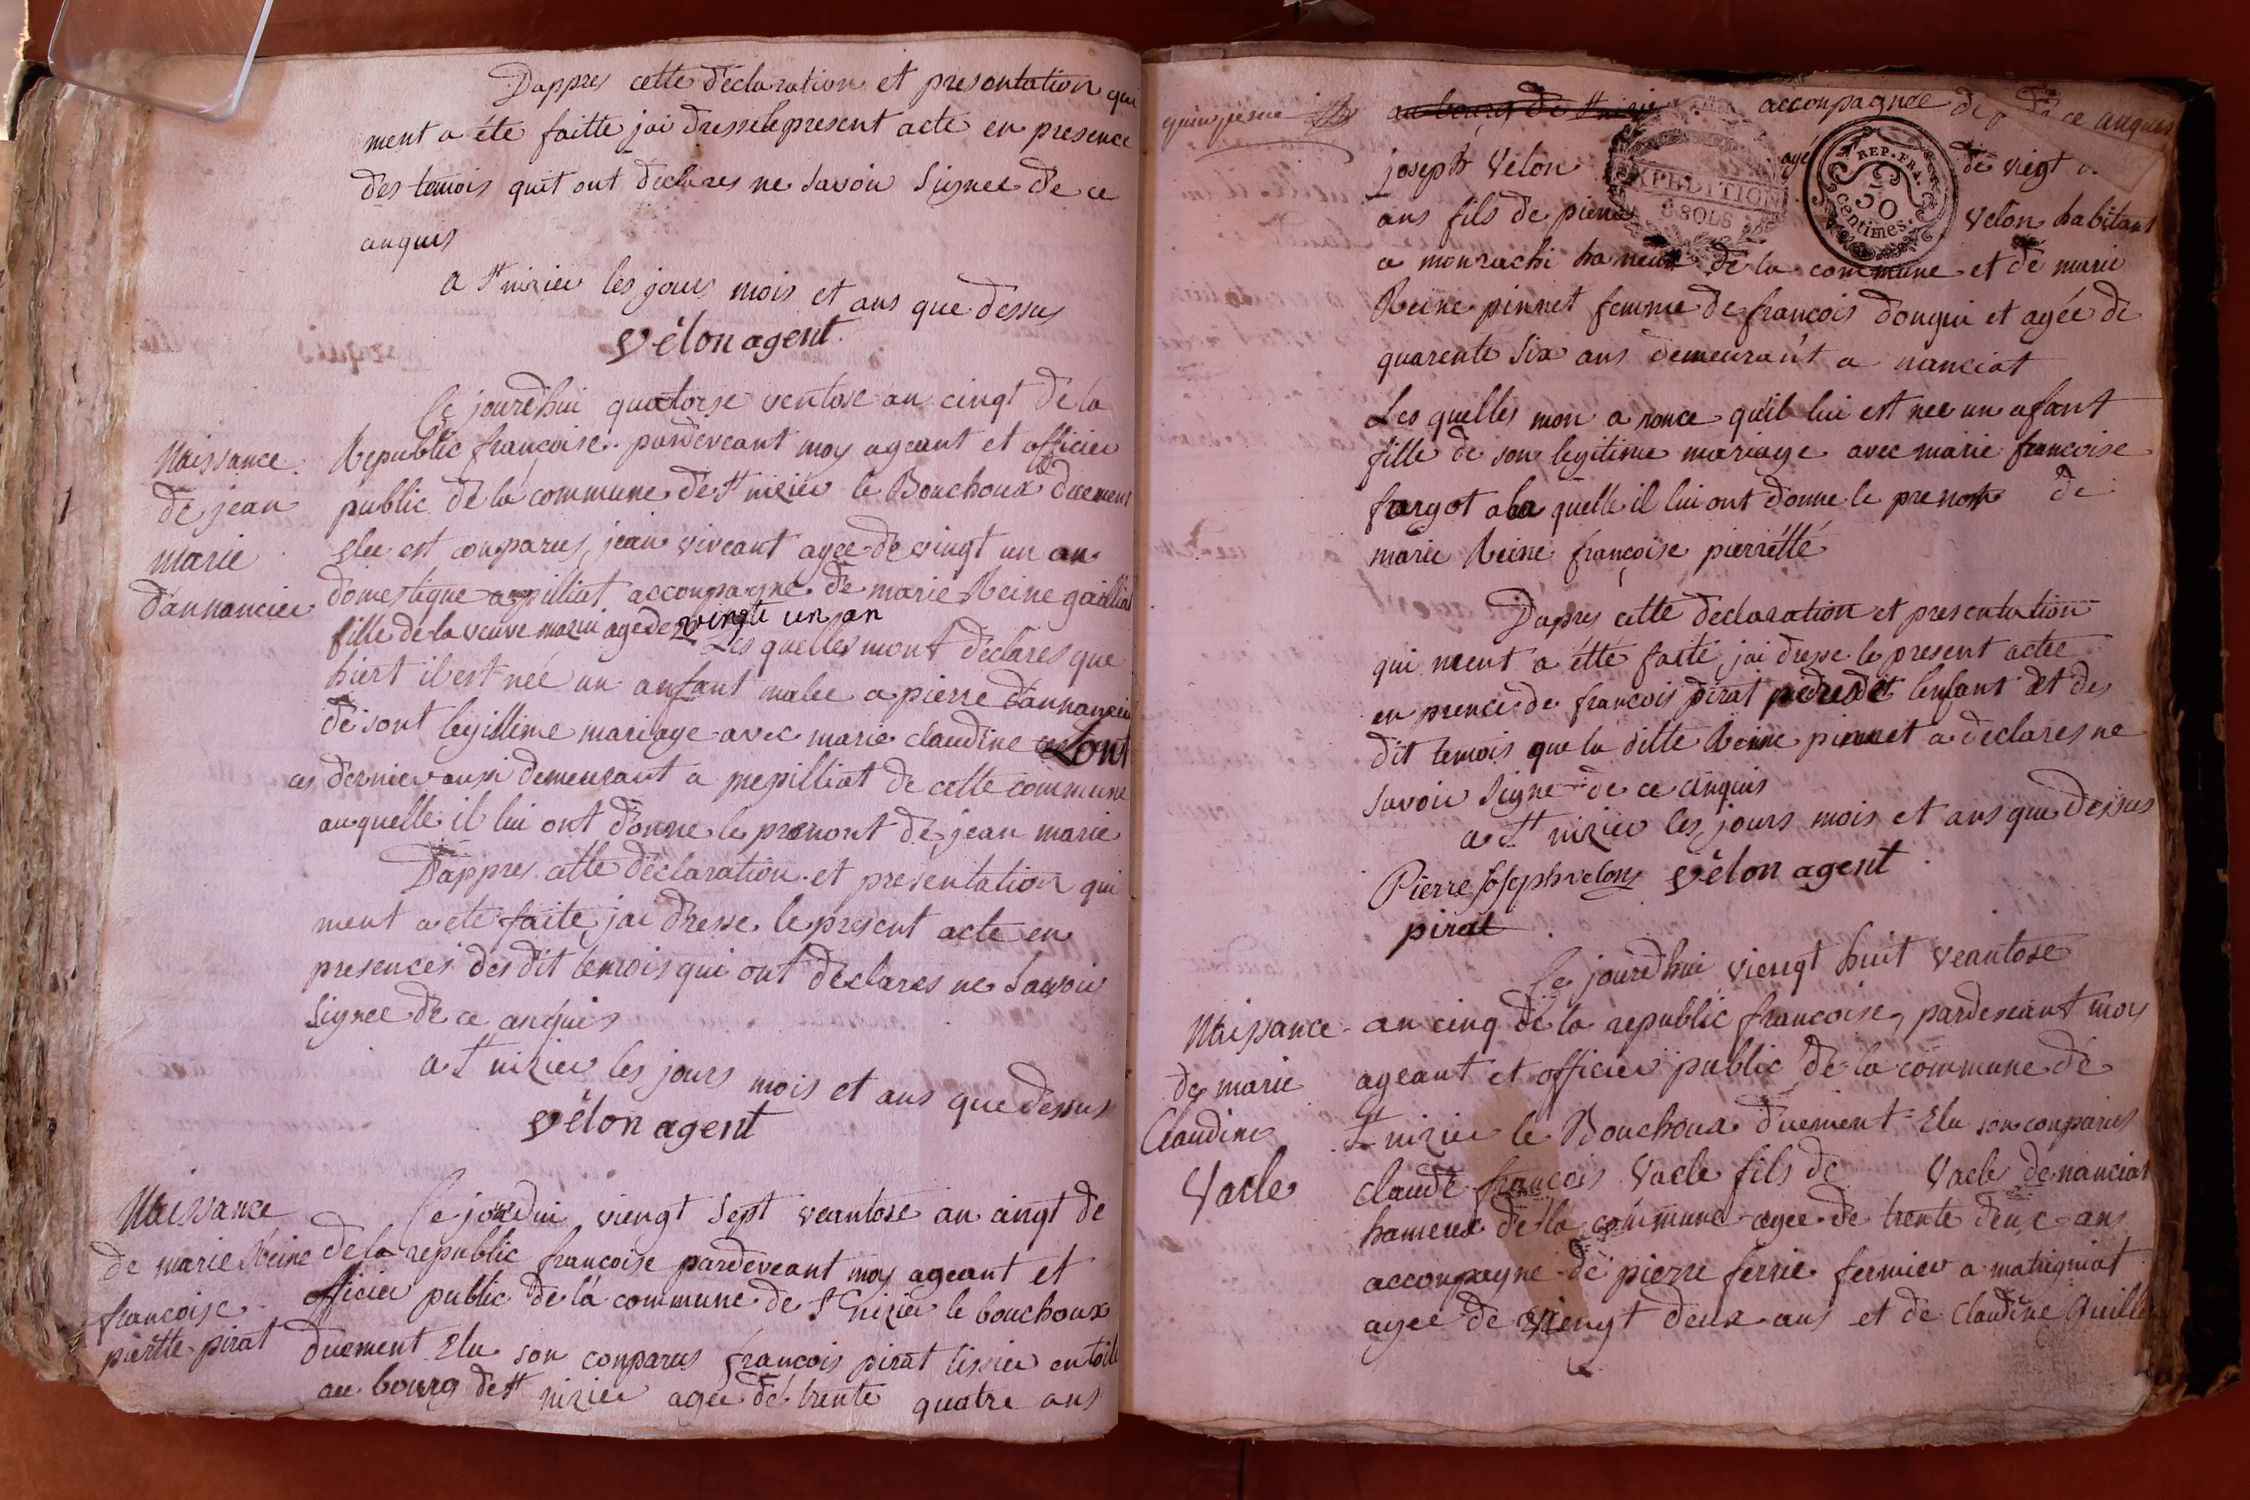 Dappres cette déclaration et presentation qui
ment a été faitte jai dresse le present acte en presence
des temois quit ont declares ne savoir signee de ce
anquis
a St nizier les jours mois et ans que dessus
vélon agent
Ce jourdhui quatorse ventose an cingt de la
Naissance
de jean
marie
dannancier
Republic françoise pardeveant moy ageant et officier
public de la commune de St nizier le Bouchoux duement
elu est conparus jean viveant agee de vingt un an
domestique a pilliat accompagne de marie Reine
fille de la veuve agé de vingte un an
Les quelles mont declares que
hiert il est née un anfant malee a pierre dannancier
de sont legitime mariage avec marie claudine
ces dernier aussi demeurant a mepilliat de cette commune
au quelle il lui ont donne le prenont de jean marie
Dappres cette déclaration et presentation qui
ment a ete faite jai dresse le present acte en
presences des dit temois qui ont déclares ne savoir
signee de ce anquis
a St nizier les jours mois et ans que dessus
vélon agent
Naissance
de marie Reine
francoise
pirat
Ce viengt sept veantose an cingt de
de la republic francoise pardeveant moy ageant et
officier public de la commune de St nizier le bouchoux
duement Elu son conparus françois pirat tissier en toile
au bourg de St nizier agee de trente quatre ans
au bourg de St accompagnée de ce anquis
joseph Velon agé de viegt
ans fils de pierre Velon habitant
a monrachi hameux de la commune et de marie
Reine pinnet femme de francois donguï et agée de
quarente six ans demeurant a nanciat
Les quelles mon a nonce quil lui est nee un afant
fille de son legitime mariage avec marie francoise
fargot a la quelle il lui ont donne le prenom de
marie Reine françoise pierrette
Dapres cette declaration et presentation
qui ment a étté faite jai dresse le present actee
en prence de francois pirat lenfant et des
dit temois que la ditte Reine pinnet a declares ne
savoir signe de ce anquis
a St nizier les jours mois et ans que dessus
Pierre Joseph velon vélon agent
pirat
Ce jourdhui viengt huit veantose
Naissance
de marie
Claudine
Vacle
an cinq de la republic francoise, pardeveant moy
ageant et officier public de la commune de
St nizier le Bouchoux duement Elu son conparus
claude françois Vacle fils de Vacle de nanciat
hameux de la commune agee de trente deux ans
accompagne de pierre ferrie fermier a matigniat
agee de viengt deux ans et de Claudine
EXPEDITION
8 SOLS
REP. FRA.
50
centimes